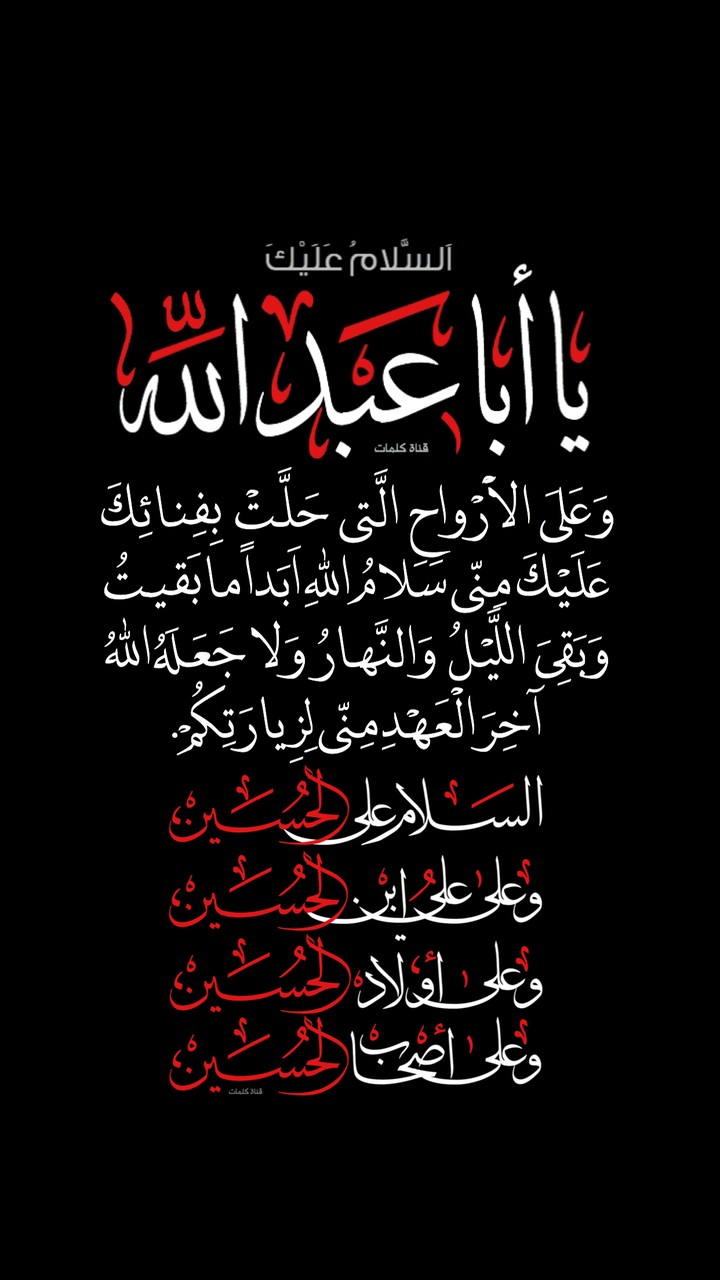 اَلسَّلامُ عَلَيْكَ
يا أبا عَبَدِ اللّٰه
قناة كلمات
وَعَلَى الاَْرْواحِ الَّتى حَلَّتْ بِفِنائِكَ
عَلَيْكَ مِنّى سَلامُ اللهِ اَبَداً ما بَقيتُ
وَبَقِىَ اللَّيْلُ وَالنَّهارُ وَلا جَعَلَهُ اللهُ
آخِرَ الْعَهْدِ مِنّى لِزِيارَتِكُمْ.
السَلام على الحُسَين
وعلى علي ابن الحُسَين
وعلى أولاد الحُسَين
وعلى أصحاب الحُسَين
قناة كلمات